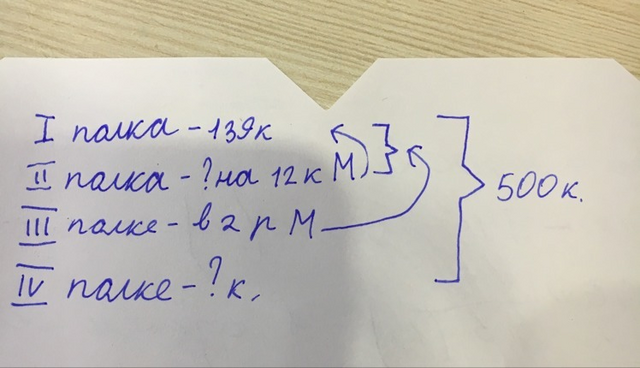 I полка - 139к
II полка - ? на 12 к М
III полке - в 2 р М
IV полке - ? к.
500 к.